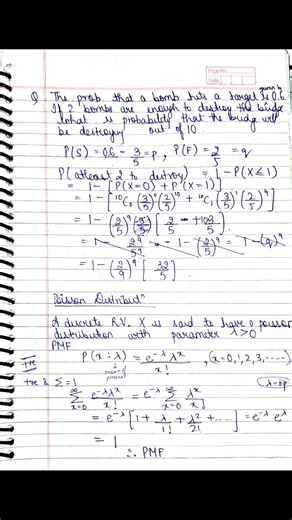 Page No.
Date
given by
Q The prob that a bomb hits a target is 0.6.
If 2 bombs are enough to destroy the bridge
what is probability that the bridge will
be destroy out of 10.
P(S) = 0.6 = 3/5 = p, P(F) = 2/5 = q
P(atleast 2 to detroy) = 1 - P(X≤1)
= 1 - [P(X=0) + P(X=1)]
= 1 - [¹⁰C₀ (3/5)⁰ (2/5)¹⁰ + ¹⁰C₁ (3/5)¹ (2/5)⁹]
= 1 - (2/5)⁹ [2/5 + 10·3/5]
= 1 - (2/9)⁹ [32/5]
Poisson Distributⁿ
A discrete R.V. X is said to have a poisson
distribution with parameter λ>0
PMF
P(x:λ) = e^-λ λ^x / x! , (x=0,1,2,3,----)
mean of poisson
λ=np
+ve & Σ=1
∞Σx=0 e^-λ λ^x / x! = e^-λ ∞Σx=0 λ^x / x!
= e^-λ [1 + λ/1! + λ²/2! + ---] = e^-λ e^λ
= 1
∴ PMF